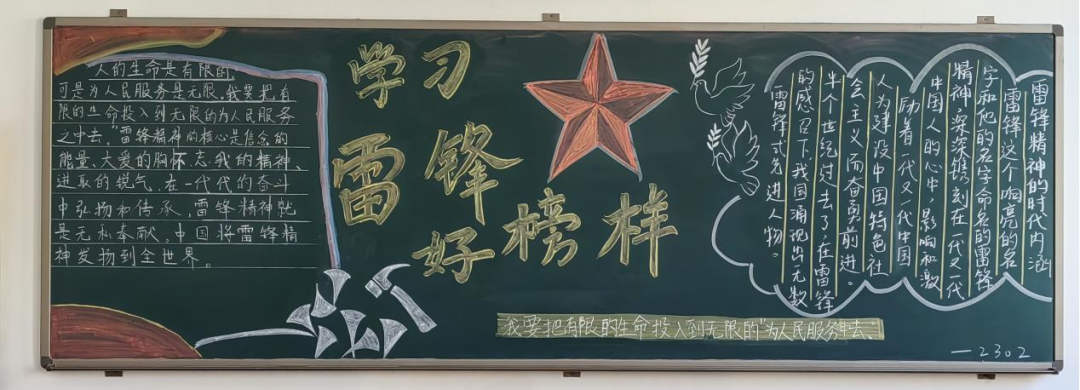 人的生命是有限的,
可是为人民服务是无限,我要把有
限的生命投入到无限的为人民服务
之中去”雷锋精神的核心是信念的
能量、大爱的胸怀、忘我的精神、
进取的锐气,在一代代的奋斗
中弘扬和传承,雷锋精神就
是无私奉献,中国将雷锋精
神发扬到全世界。
学习
雷锋
好榜样
雷锋精神的时代内涵
雷锋这个响亮的名
字和他的名字命名的雷锋
精神,深深镌刻在一代又一代
中国人的心中,影响和激
励着一代又一代中国
人为建设中国特色社
会主义而奋勇前进。
半个世纪过去了,在雷锋
的感召下,我国涌现出无数
雷锋式先进人物。
我要把有限的生命投入到无限的“为人民服务中去”
—2302